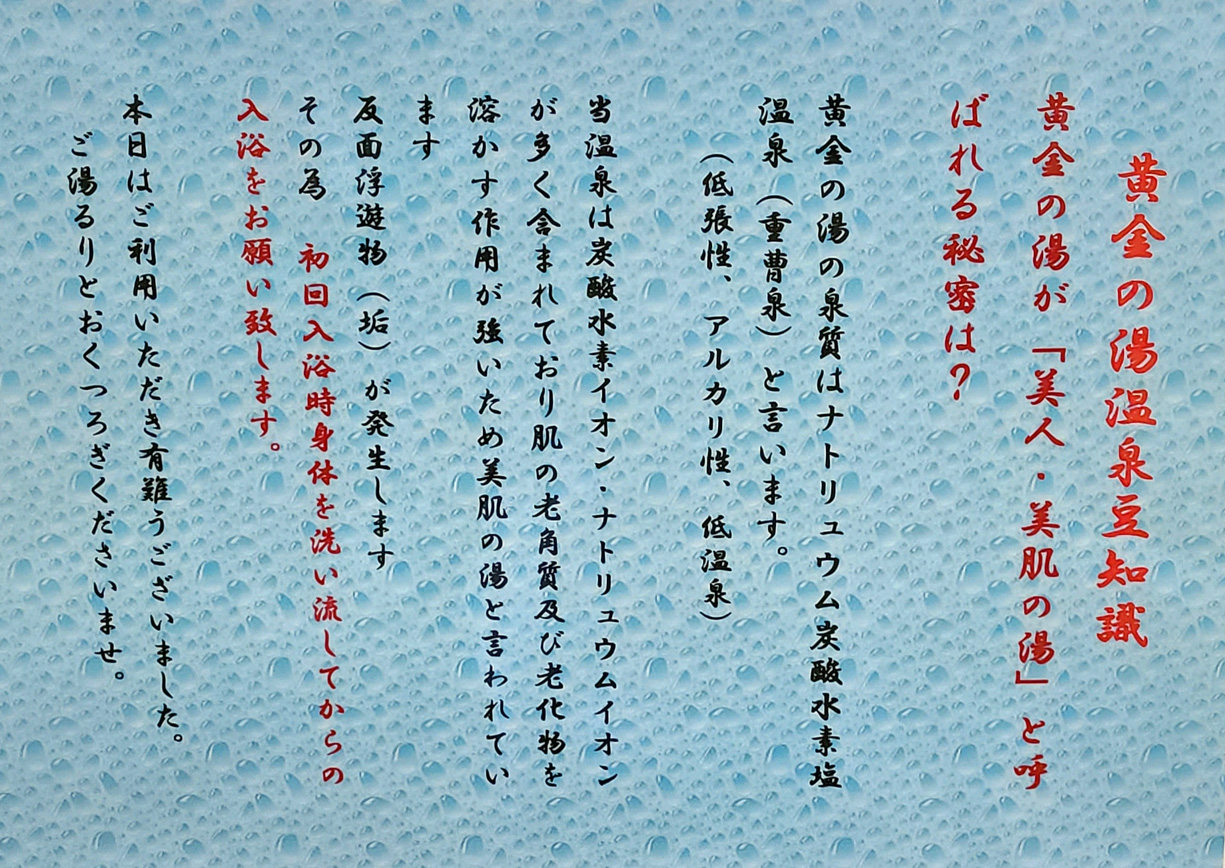 黄金の湯温泉豆知識
黄金の湯が「美人・美肌の湯」と呼
ばれる秘密は？
黄金の湯の泉質はナトリュウム炭酸水素塩
温泉（重曹泉）と言います。
（低張性、アルカリ性、低温泉）
当温泉は炭酸水素イオン・ナトリュウムイオン
が多く含まれており肌の老角質及び老化物を
溶かす作用が強いため美肌の湯と言われてい
ます
反面浮遊物（垢）が発生します
その為　初回入浴時身体を洗い流してからの
入浴をお願い致します。
本日はご利用いただき有難うございました。
ご湯るりとおくつろぎくださいませ。